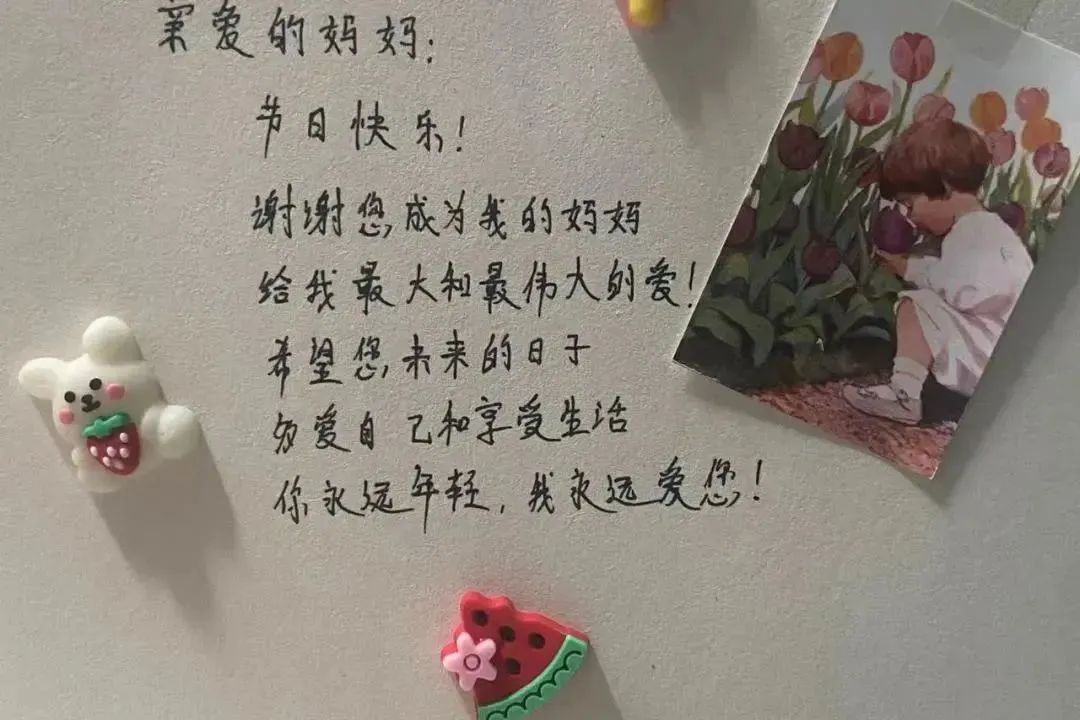 亲爱的妈妈：
节日快乐！
谢谢您成为我的妈妈
给我最大和最伟大的爱！
希望您未来的日子
多爱自己和享受生活
你永远年轻，我永远爱您！